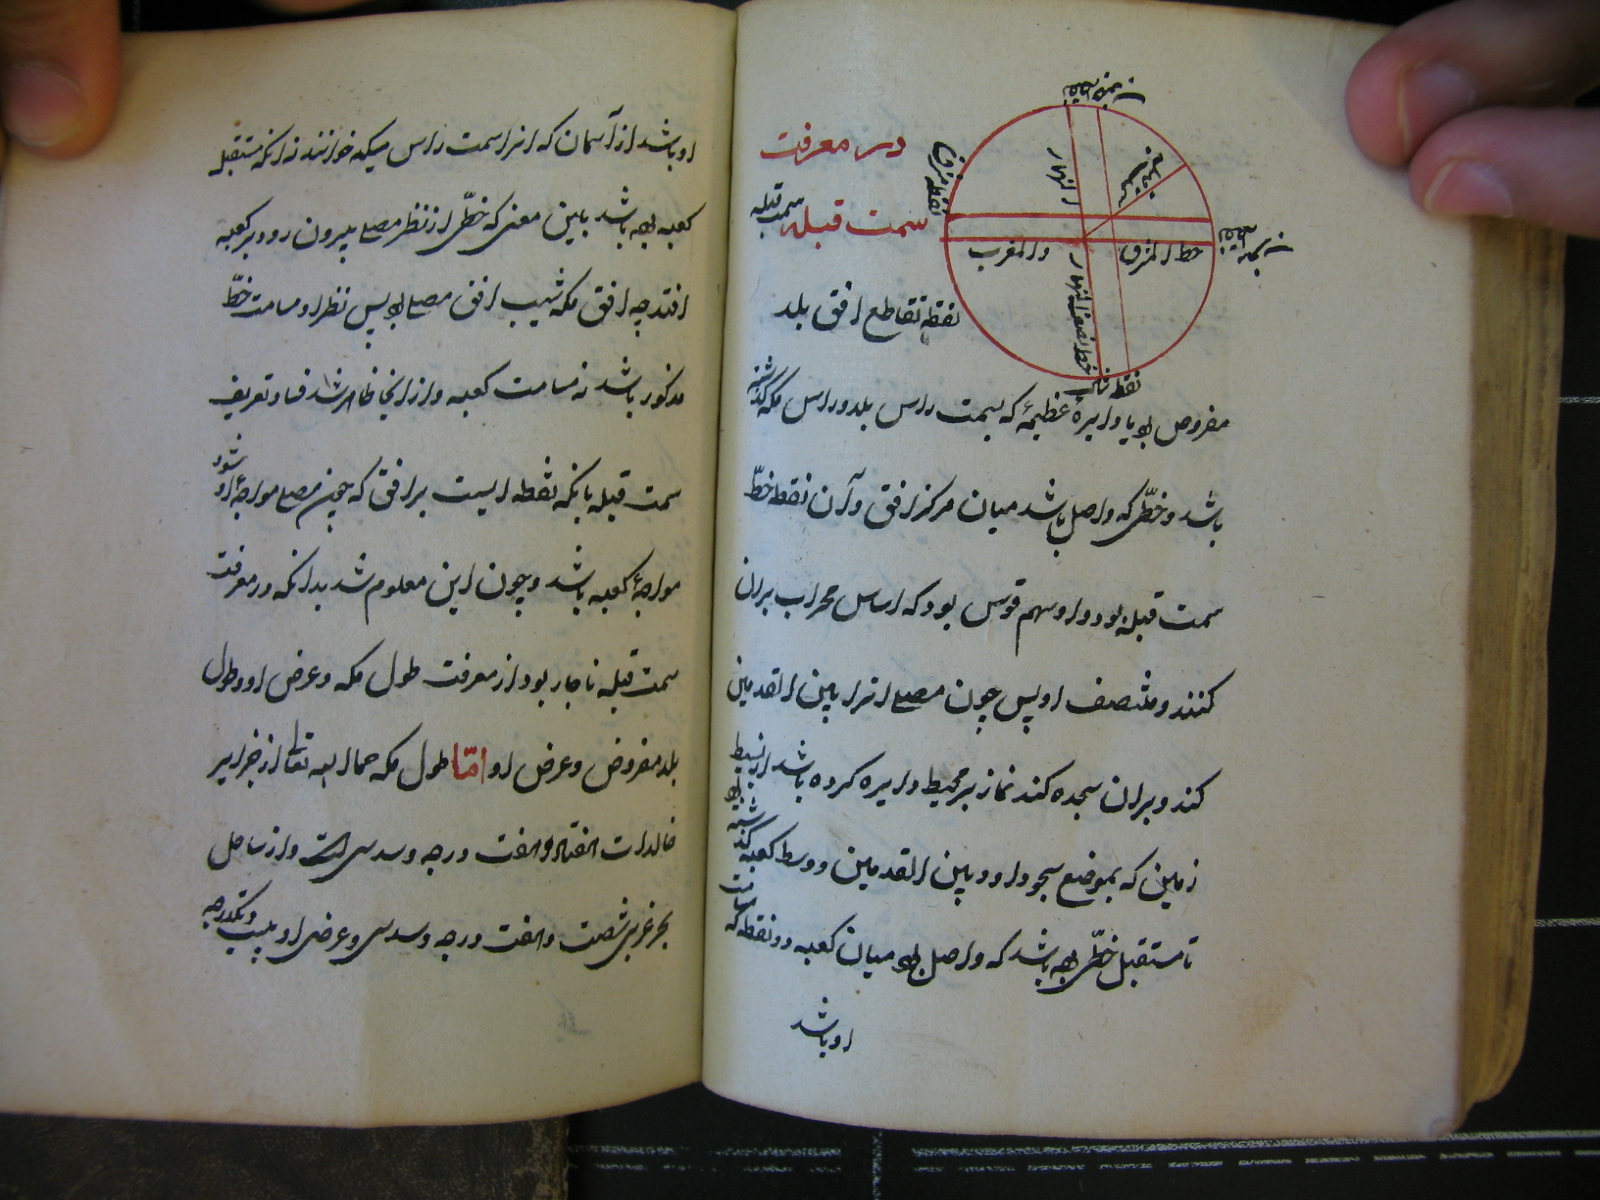 در معرفت
سمت قبله سمت قبله
نقطه تقاطع افق بلد
مفروض بود با دایرهٔ عظیمهٔ که بسمت راس بلد و راس مکه گذشته
باشد و خطّی که واصل باشد میان مرکز افق و آن نقطه خطّ
سمت قبله بود و او سهم قوس بود که اساس محراب بران
کنند و منتصف او پس چون مصلی انرا بین القدمین
کند و بران سجده کند نماز بر محیط دایره کرده باشد از بسیط
زمین که بموضع سجود او و بین القدمین و وسط کعبه گذشته بود
تا مستقبل خطّی بوده باشد که واصل بود میان کعبه و نقطه که مسامت
او باشد
نقطه جنوب
نقطه شمال
خط نصف النهار
خط المشرق والمغرب
او باشد از آسمان که انرا سمت راس میکه خوانند نه انکه مستقبل
کعبه بوده باشد باین معنی که خطّی از نظر مصلی بیرون رود بر کعبه
افتد چه افق مکه شیب افق مصلی بود پس نظر او مسامت خطّ
مذکور باشد نه مسامت کعبه و از انجا ظاهر شد فساد تعریف
سمت قبله بانکه نقطه ایست بر افق که چون مصلی مواجهٔ او شود
مواجهٔ کعبه باشد و چون این معلوم شد بدانکه در معرفت
سمت قبله ناچار بود از معرفت طول مکه و عرض او و طول
بلد مفروض و عرض او امّا طول مکه حماها الله تعالی از جزایر
خالدات هفتاد و هفت درجه و سدسی است و از ساحل
بحر غربی شصت و هفت درجه و سدسی و عرض او بیست و یکدرجه